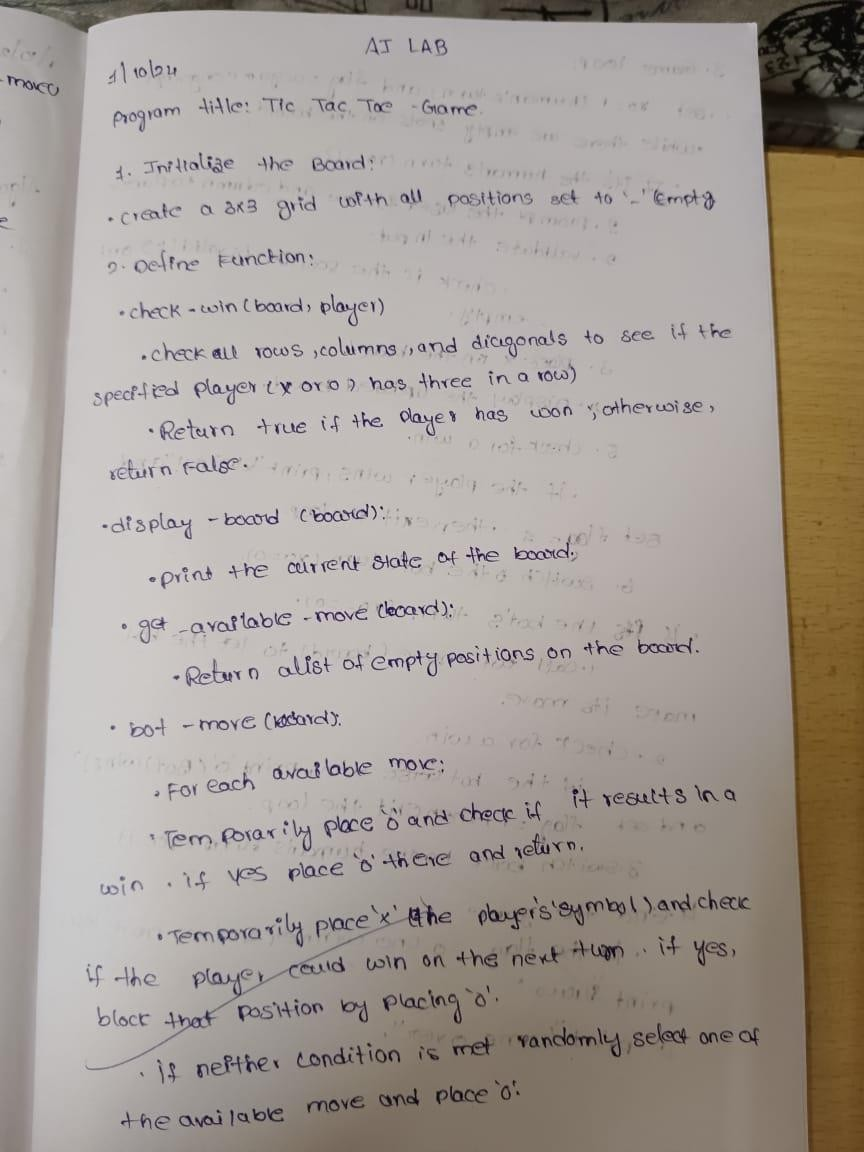 AI LAB
1/10/24
program title: Tic Tac Toe - Game.
1. Initialize the Board:
• create a 3x3 grid with all positions set to '-' Empty
2. Define Function:
• check - win (board, player)
• check all rows, columns, and diagonals to see if the
specified player (x or o) has three in a row)
• Return true if the player has won; otherwise,
return False.
• display - board (board):
• print the current state of the board;
• get - available - move (board):
• Return a list of empty positions on the board.
• bot - move (board):
• For each available move:
• Temporarily place 'o' and check if it results in a
win. if yes place 'o' there and return.
• Temporarily place 'x' (the player's symbol) and check
if the player could win on the next turn. if yes,
block that position by placing 'o'.
• if neither condition is met randomly select one of
the available move and place 'o'.
moreo